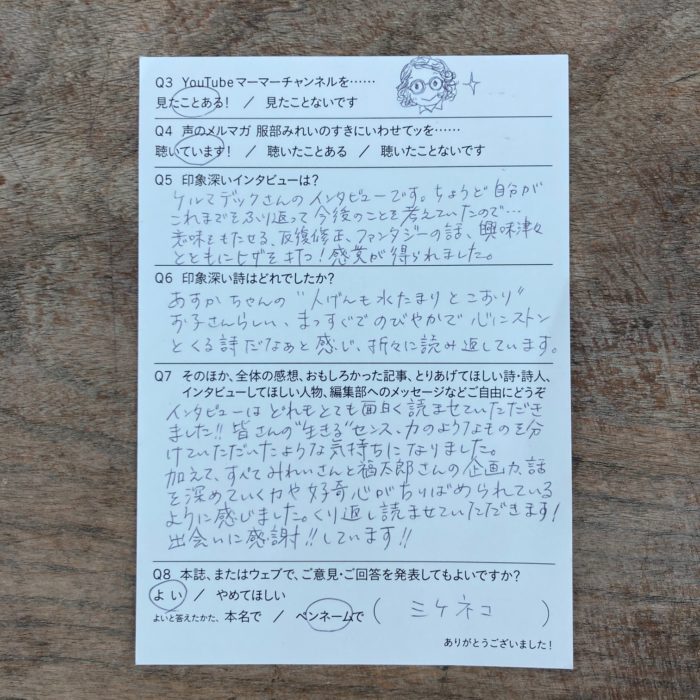 Q3 YouTubeマーマーチャンネルを……
見たことある! / 見たことないです
Q4 声のメルマガ 服部みれいのすきにいわせてッを……
聴いています! / 聴いたことある / 聴いたことないです
Q5 印象深いインタビューは?
ケルマデックさんのインタビューです。ちょうど自分が
これまでをふり返って今後のことを考えていたので…
意味をもたせる、反復修正、ファンタジーの話、興味津々
とともにヒザを打つ!感覚が得られました。
Q6 印象深い詩はどれでしたか?
あすかちゃんの"人げんも水たまりとこおり"
お子さんらしい、まっすぐでのびやかで心にストン
とくる詩だなぁと感じ、折々に読み返しています。
Q7 そのほか、全体の感想、おもしろかった記事、とりあげてほしい詩・詩人、
インタビューしてほしい人物、編集部へのメッセージなどご自由にどうぞ
インタビューはどれもとても面白く読ませていただき
ました!!皆さんの"生きる"センス、力のようなものを分
けていただいたような気持ちになりました。
加えて、すべてみれいさんと福太郎さんの企画力、話
を深めていく力や好奇心がちりばめられている
ように感じました。くり返し読ませていただきます!
出会いに感謝!!しています!!
Q8 本誌、またはウェブで、ご意見・ご回答を発表してもよいですか?
よい / やめてほしい
よいと答えたかた、本名で / ペンネームで ( ミケネコ )
ありがとうございました!